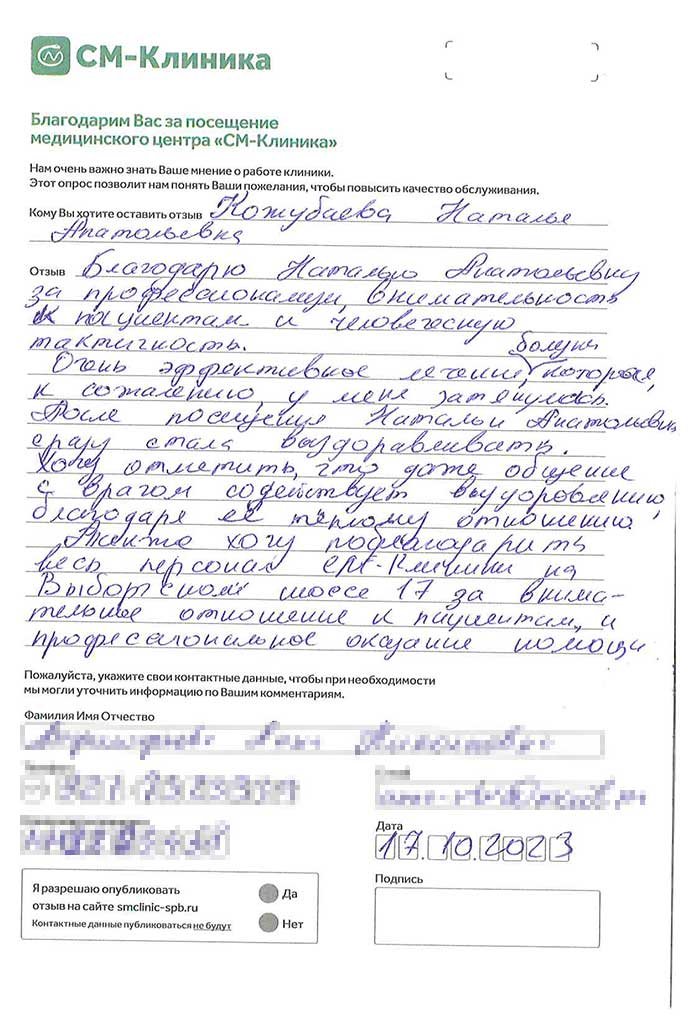 СМ-Клиника
Благодарим Вас за посещение
медицинского центра «СМ-Клиника»
Нам очень важно знать Ваше мнение о работе клиники.
Этот опрос позволит нам понять Ваши пожелания, чтобы повысить качество обслуживания.
Кому Вы хотите оставить отзыв Кожубаева Наталье
Анатольевна
Отзыв Благодарю Наталью Анатольевну
за профессионализм, внимательность
к пациентам и человеческую
тактичность.
болезни
Очень эффективное лечение, которые,
к сожалению, у меня затянулось.
После посещения Натальи Анатольевны
сразу стала выздоравливать.
Хочу отметить, что даже общение
с врачом содействует выздоровлению,
благодаря её тёплому отношению.
Также хочу поблагодарить
весь персонал СМ-Клиники на
Выборгском шоссе 17 за внима-
тельное отношение к пациентам, и
профессиональное оказание помощи
Пожалуйста, укажите свои контактные данные, чтобы при необходимости
мы могли уточнить информацию по Вашим комментариям.
Фамилия Имя Отчество
Дата
17.10.2023
Я разрешаю опубликовать
отзыв на сайте smclinic-spb.ru
Контактные данные публиковаться не будут
Да
Нет
Подпись